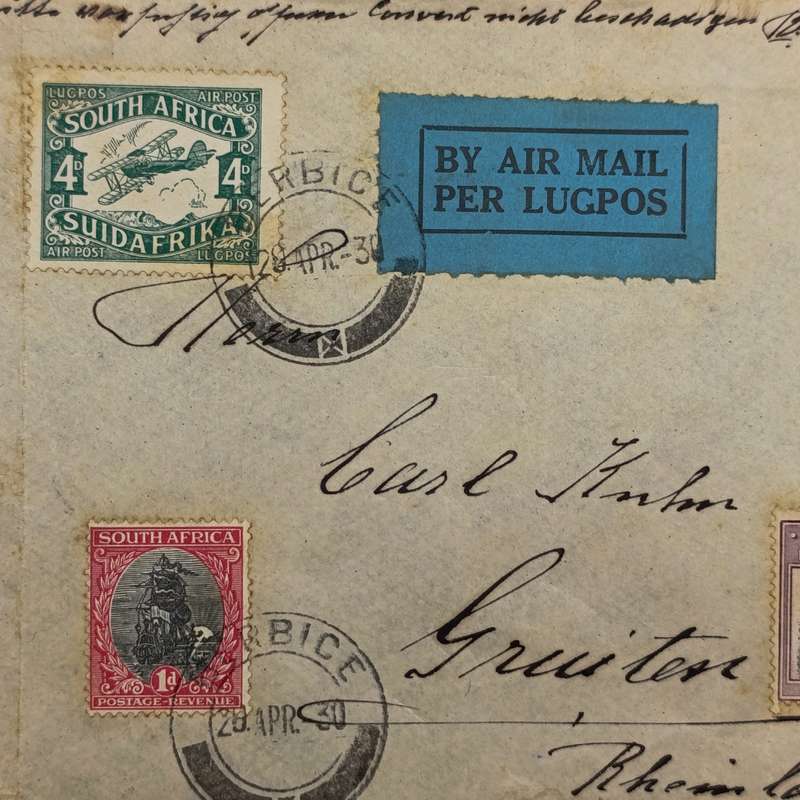 Bitte vorsichtig öffnen Couvert nicht beschädigen
LUGPOS AIR POST
SOUTH AFRICA
4D 4D
SUIDAFRIKA
AIR POST LUGPOS
BY AIR MAIL
PER LUGPOS
ERBICE
28.APR.-30
Herrn
Carl Kuhn
Gruiten
Rheinl
SOUTH AFRICA
1d
POSTAGE-REVENUE
RBICE
28.APR.-30